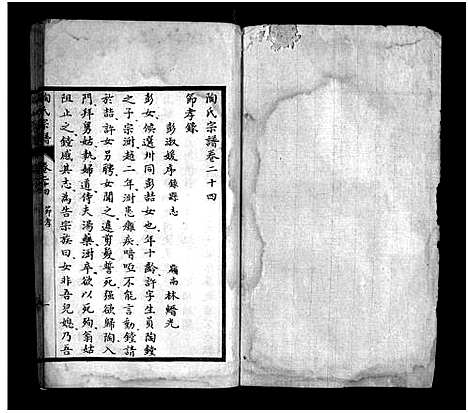 陶氏宗譜卷二十四
節孝錄
彭淑媛序 錄縣志
嶺南林縉光
彭女候選州同彭喆女也年十齡許字生員陶鏜
之子宗澍越二十年澍患癱疾喑啞不能言動鏜請
於喆許另聘女聞之遽剪髮誓死强欲歸陶入
門拜舅姑執婦道侍夫湯藥澍卒欲以死殉翁姑
阻止之鏜感其志為告宗族曰女非吾兒媳乃吾
陶氏宗譜
卷二十四 節孝
一